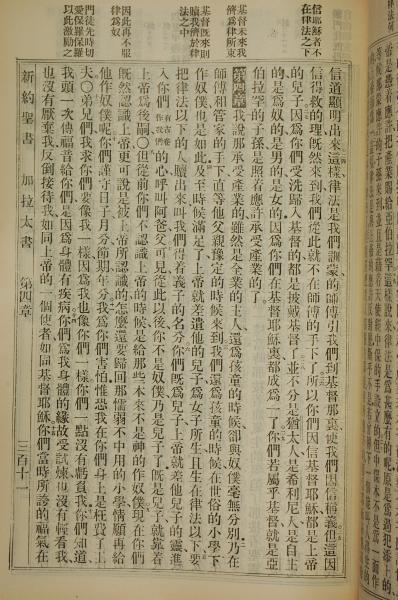 信耶穌者不
在律法之下
基督未來我
儕為律所束
基督既來則
贖我儕於律
法之中
因此再不服
律為奴
門徒先時切
愛保羅保羅
以此激勵之
信道顯明出來這樣律法是我們訓蒙的師傅引我們到基督那裏使我們因信稱義但這因
信得救的理既然來到我們從此就不在師傅的手下了所以你們因信基督耶穌都是上帝
的兒子因為你們受洗歸入基督的都是披戴基督了並不分是猶太人是希利尼人是自主
的是為奴的是男的是女的因為你們在基督耶穌裏都成為一了你們若屬乎基督就是亞
伯拉罕的子孫是照着應許承受產業的了
第四章 我說那承受產業的雖然是全業的主人還為孩童的時候卻與奴僕毫無分別乃在
師傅和管家的手下直等他父親豫定的時候來到我們還為孩童的時候在世俗的小學下
作奴僕也是如此及至時候滿足了上帝就差遣他的兒子為女子所生且生在律法以下要
把律法以下的人贖出來叫我們得着義子的名分你們既為兒子上帝就差他兒子的靈進
入你們有古卷作我們的心呼叫阿爸父可見從此以後你不是奴僕乃是兒子了既是兒子就靠着
上帝為後嗣○但從前你們不認識上帝的時候是給那些本來不是神的作奴僕現在你們
既然認識上帝更可說是被上帝所認識的怎麼還要歸回那懦弱不中用的小學情願再給
他作奴僕呢你們謹守日子月分節期年分我為你們害怕惟恐我在你們身上是枉費了工
夫○弟兄們我求你們要像我一樣因為我也像你們一樣你們一點沒有虧負我你們知道
我頭一次傳福音給你們是因為身體有疾病你們為我身體的緣故受試煉也沒有輕看我
也沒有厭棄我反倒接待我如同上帝的一個使者如同基督耶穌你們當時所誇的福氣在
新約聖書 加拉太書 第四章 三百十一